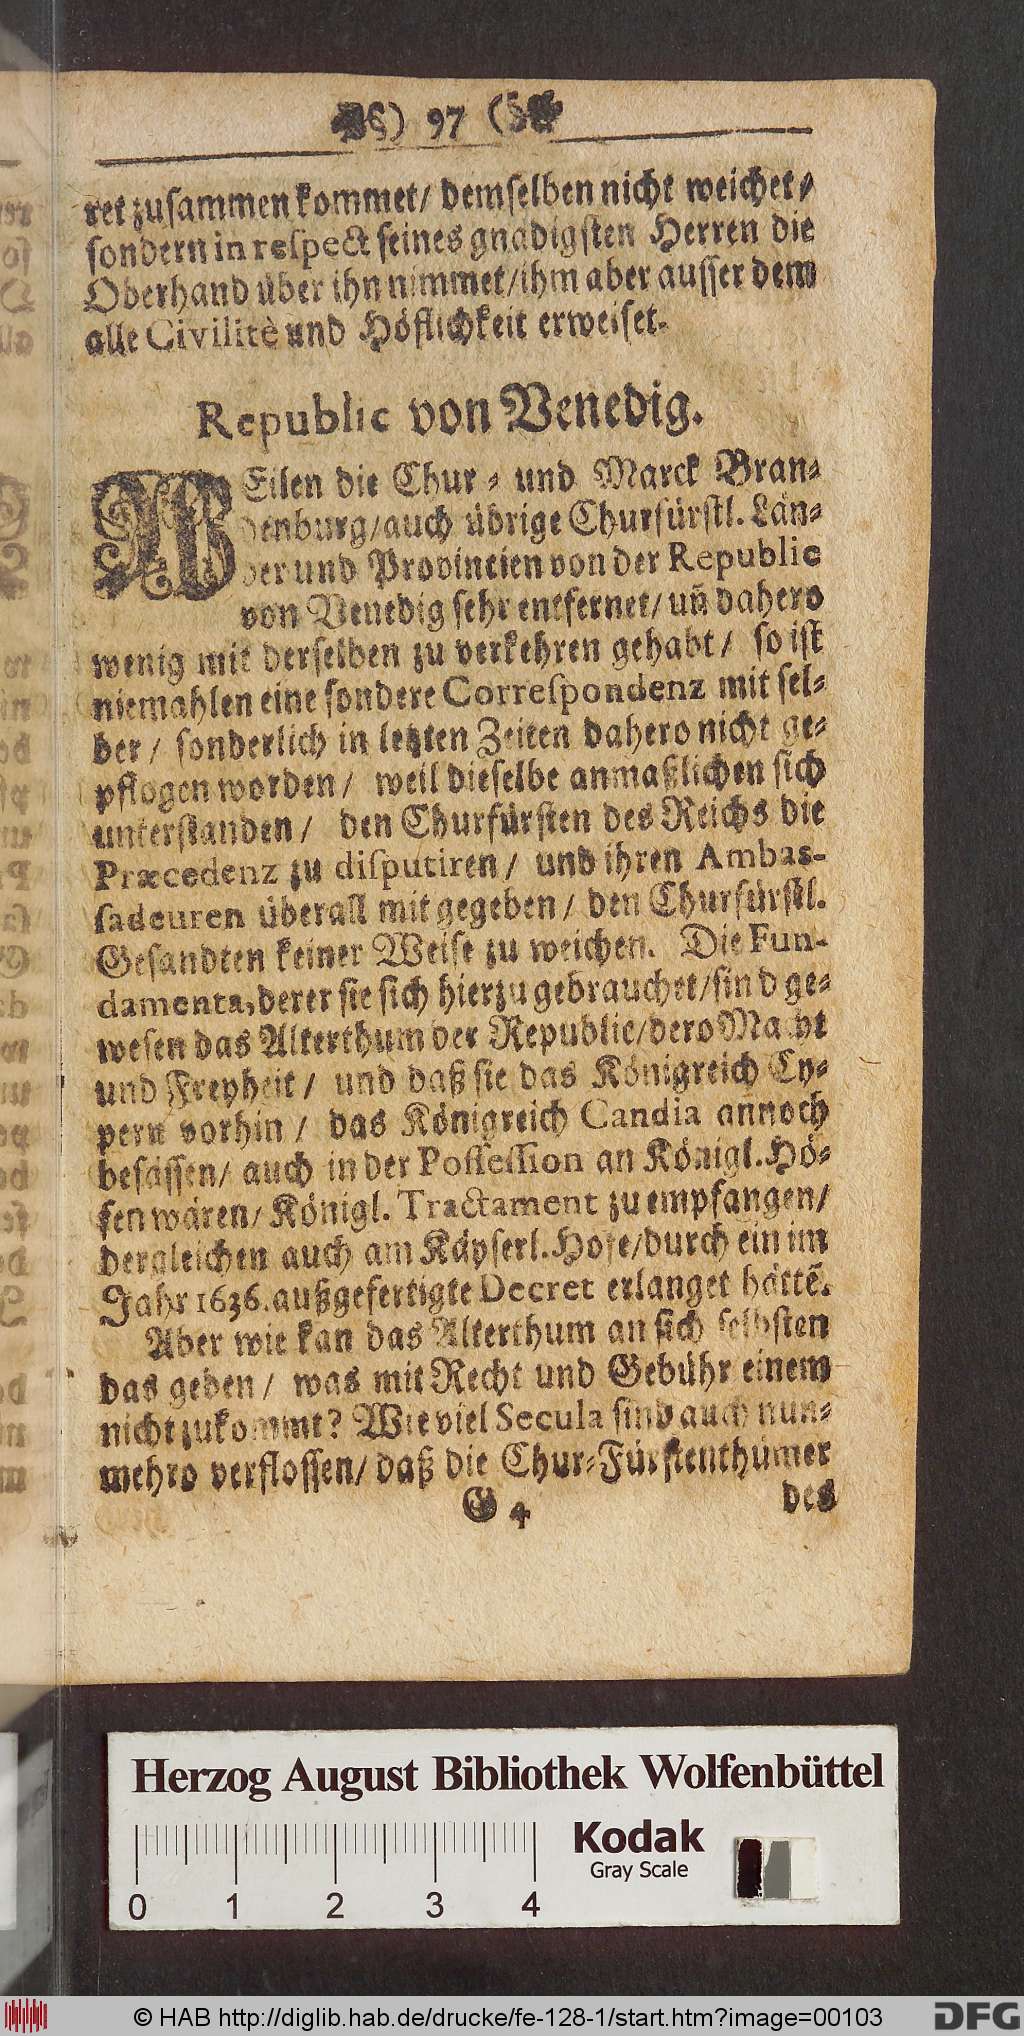 §) 97 (§
ret zusammen kommet/ demselben nicht weichet/
sondern in respect seines gnädigsten Herren die
Oberhand über ihn nimmet/ihm aber ausser dem
alle Civilitè und Höflichkeit erweiset.
Republic von Venedig.
WEilen die Chur- und Marck Bran-
denburg/auch übrige Churfürstl. Län-
der und Provintien von der Republic
von Venedig sehr entfernet/ uñ dahero
wenig mit derselben zu verkehren gehabt/ so ist
niemahlen eine sondere Correspondenz mit sel-
ber/ sonderlich in letzten Zeiten dahero nicht ge-
pflogen worden/ weil dieselbe anmaßlichen sich
unterstanden/ den Churfürsten des Reichs die
Præcedenz zu disputiren/ und ihren Ambas-
sadeuren überall mit gegeben/ den Churfürstl.
Gesandten keiner Weise zu weichen. Die Fun-
damenta, derer sie sich hierzu gebrauchet/sind ge-
wesen das Alterthum der Republic/dero Macht
und Freyheit/ und daß sie das Königreich Cy-
pern vorhin/ das Königreich Candia annoch
besässen/ auch in der Possession an Königl. Hö-
fen wären/ Königl. Tractament zu empfangen/
dergleichen auch am Käyserl. Hofe/durch ein im
Jahr 1636. außgefertigte Decret erlanget hättẽ.
Aber wie kan das Alterthum an sich selbsten
das geben/ was mit Recht und Gebühr einem
nicht zukommt? Wie viel Secula sind auch nun-
mehro verflossen/ daß die Chur-Fürstenthümer
G 4 des
Herzog August Bibliothek Wolfenbüttel
Kodak
Gray Scale
0 1 2 3 4
© HAB http://diglib.hab.de/drucke/fe-128-1/start.htm?image=00103
DFG